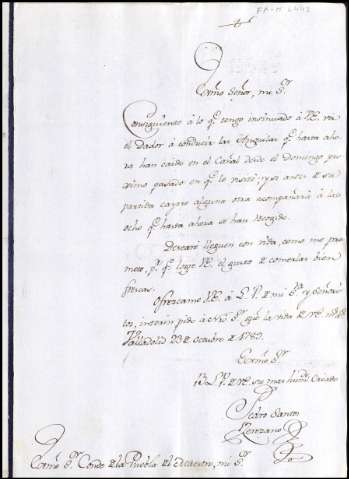 Exmo Señor, mi Sr.
Consiguiente á lo q.e tengo insinuado á VE. va
el Dador á conducir las Anguilas q.e hasta aho-
ra han caido en el Cañal desde el Domingo pro-
ximo pasado en q.e lo visité; y si antes de su
partida cayere alguna otra acompañará á las
ocho q.e hasta ahora se han recogido.
Deseare lleguen con vida, como me pro-
meto, p.a q.e logre VE. el gusto de comerlas bien
frescas.
Ofrezcame VE. á L. P. de mi Sra. y Señori-
tos, interin pido á Nro Sr. gue la vida de VE. ms. as.
Valladolid 23 de octubre de 1783.
Exmo Sr.
B. L. M. de VE. su mas humde. Criado
Pedro Santos
Lorenzano
Exmo Sr. Conde de la Puebla el Maestre, mi Sr.